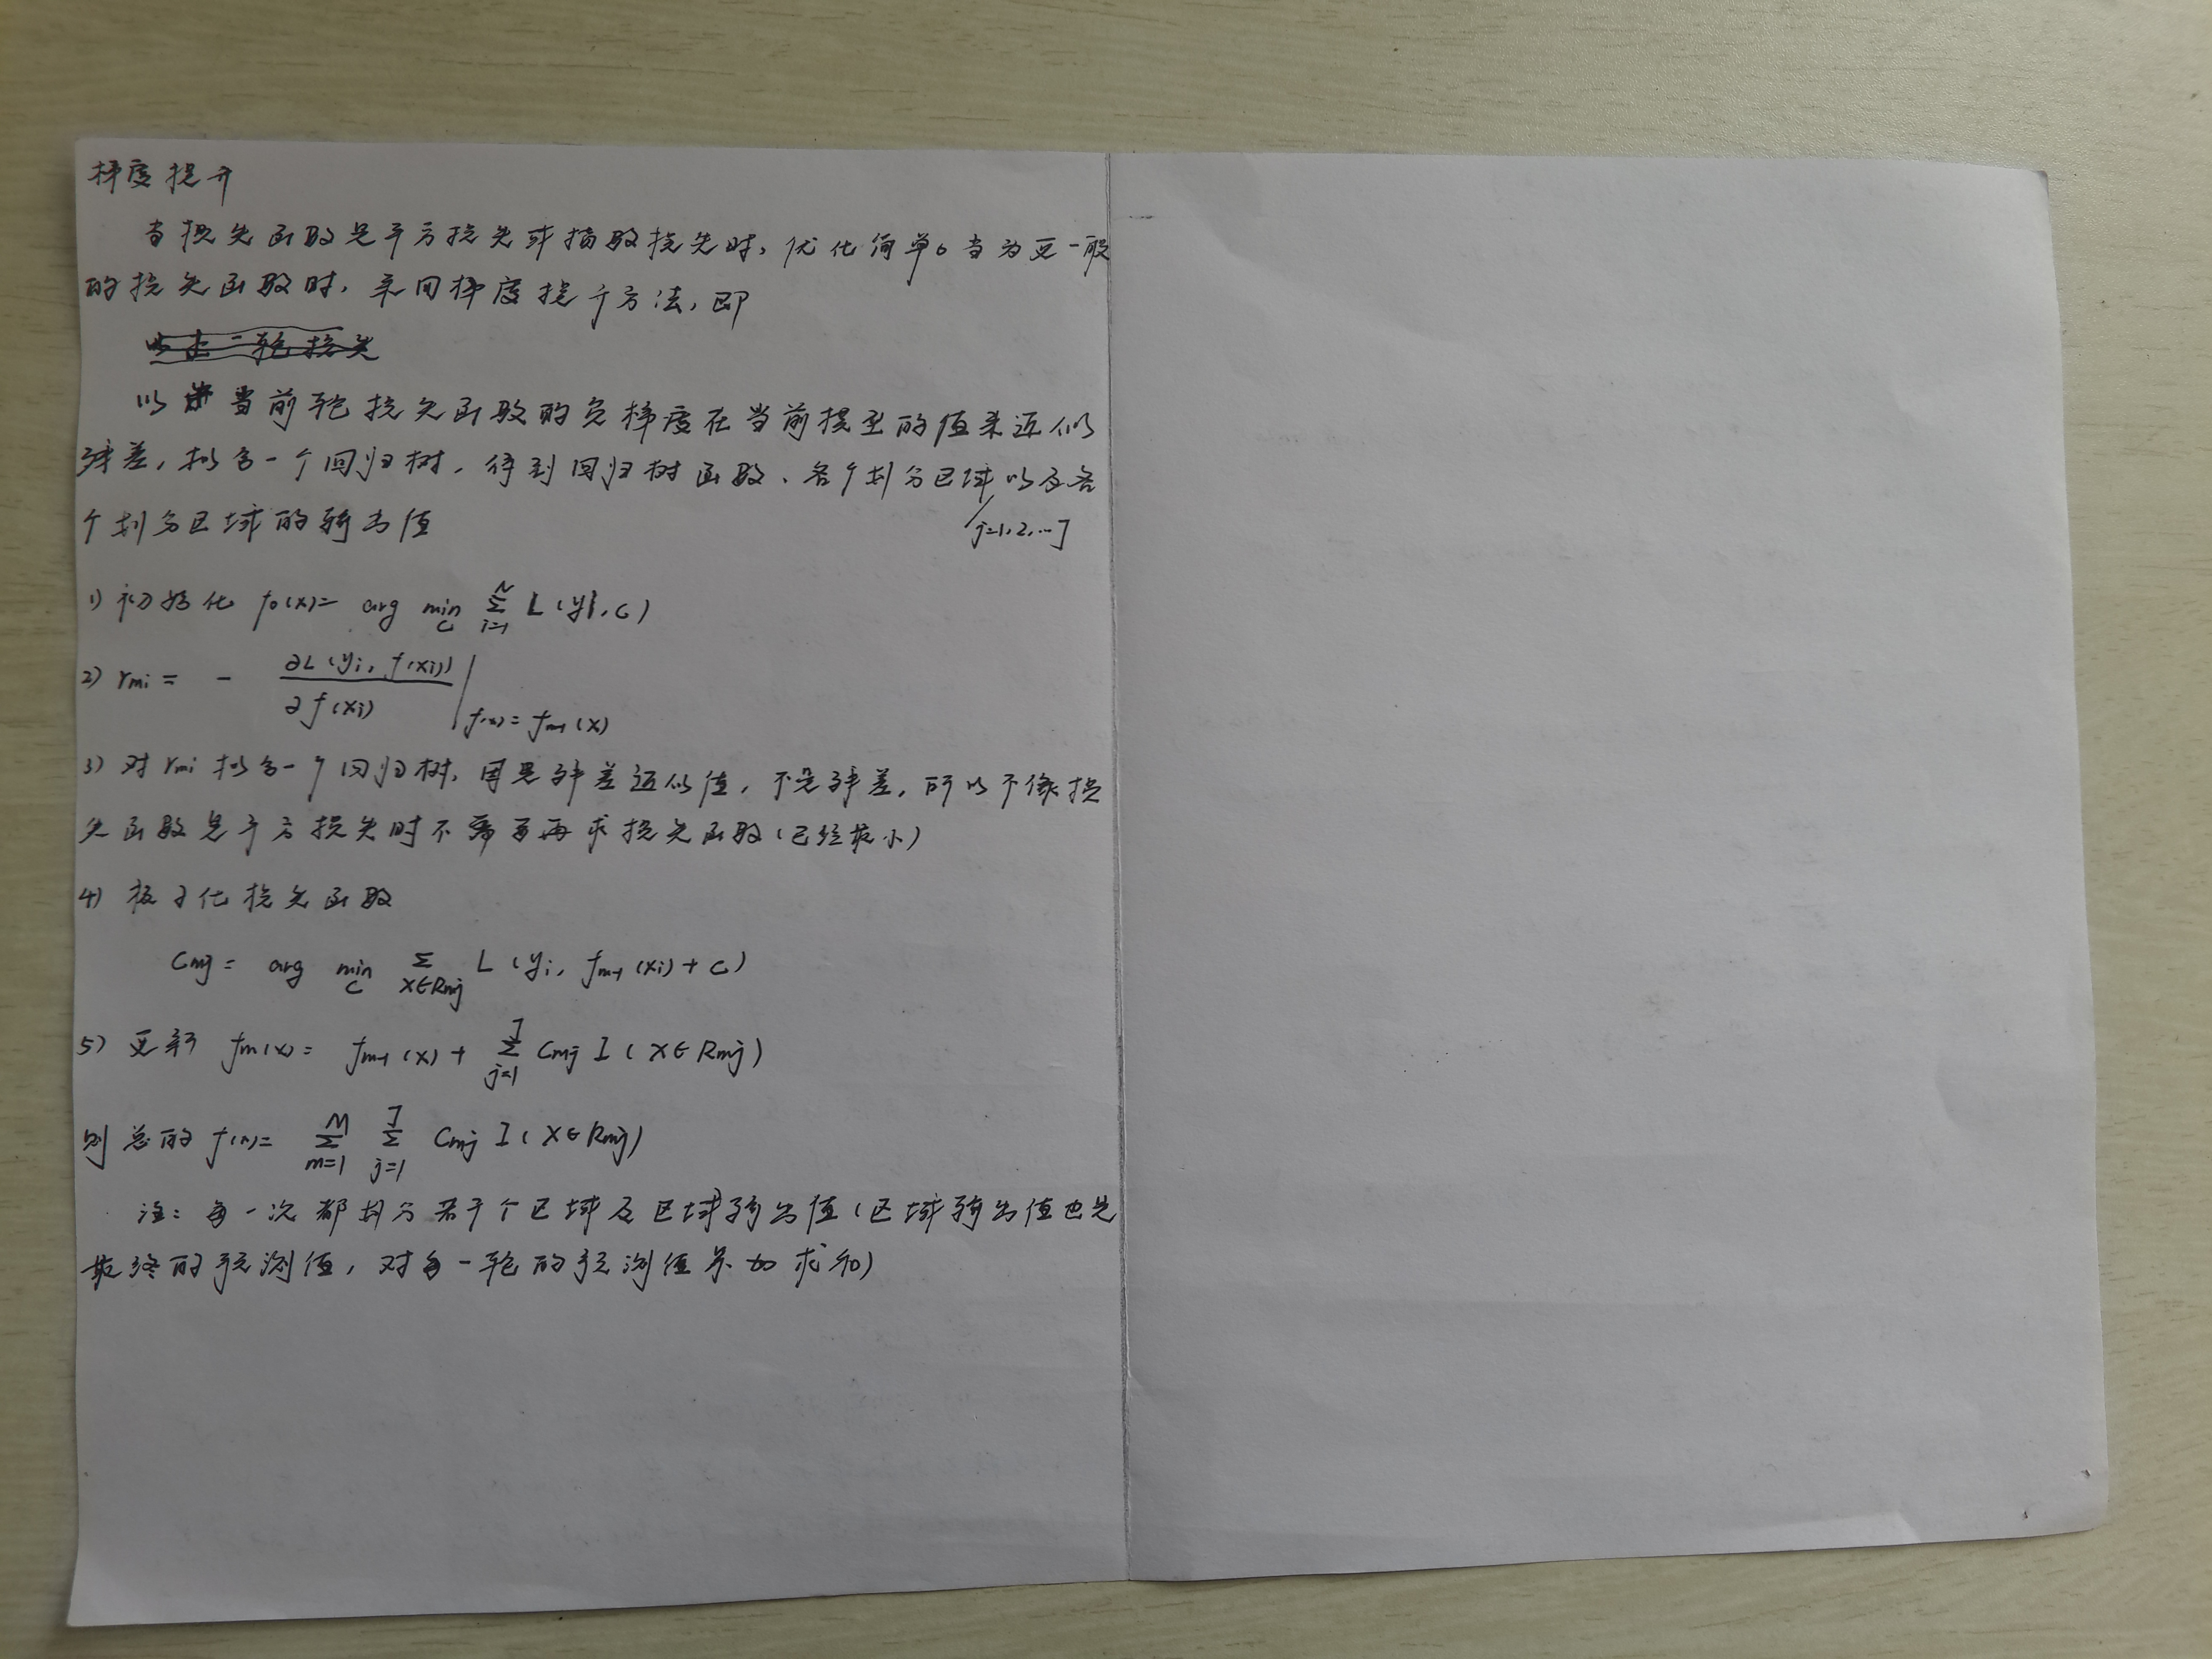 梯度提升
当损失函数是平方损失或指数损失时，优化简单。当为更一般
的损失函数时，采用梯度提升方法，即
以当前轮损失函数的负梯度在当前模型的值来近似
残差，拟合一个回归树，得到回归树函数、各个划分区域以及各
j=1,2,...J
个划分区域的输出值
1) 初始化 f₀(x)= arg min_c Σ_{i=1}^{N} L(yi, c)
2) r_{mi} = - ∂L(y_i, f(x_i)) / ∂f(x_i) |_{f(x)=f_{m-1}(x)}
3) 对r_{mi}拟合一个回归树，因是残差近似值，不是残差，所以不像损
失函数是平方损失时不需要再求损失函数(已经最小)
4) 极小化损失函数
C_{mj} = arg min_c Σ_{x∈R_{mj}} L(y_i, f_{m-1}(x_i)+c)
5) 更新 f_m(x)= f_{m-1}(x) + Σ_{j=1}^{J} C_{mj} I(x∈R_{mj})
则总的 f(x)= Σ_{m=1}^{M} Σ_{j=1}^{J} C_{mj} I(x∈R_{mj})
注：每一次都划分若干个区域及区域输出值(区域输出值也是
最终的预测值，对每一轮的预测值累加求和)